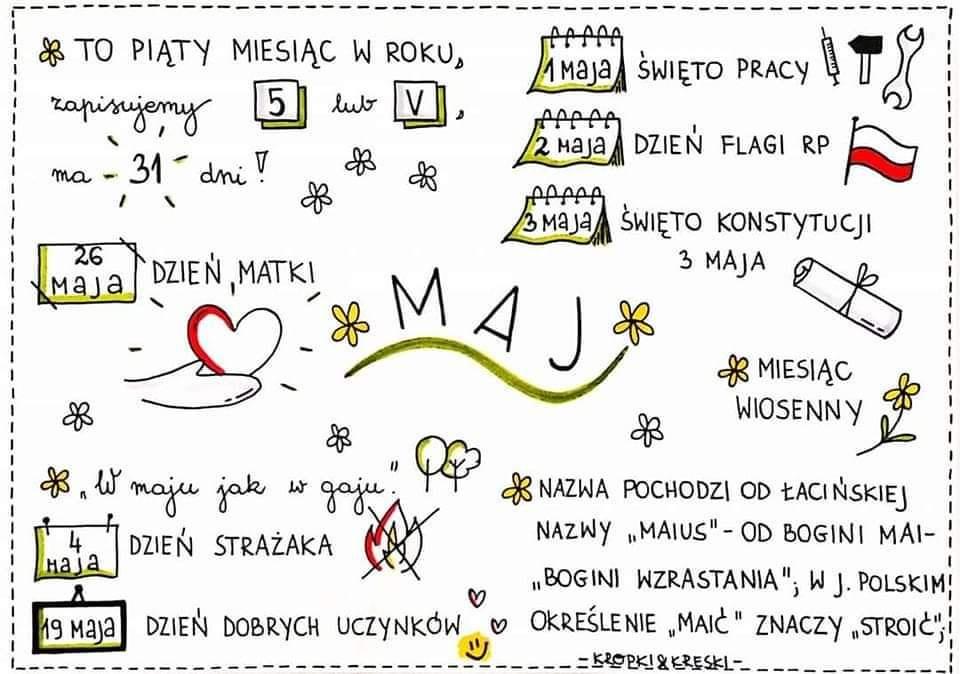 TO PIĄTY MIESIĄC W ROKU,
zapisujemy 5 lub V,
ma 31 dni!
1 MAJA ŚWIĘTO PRACY
2 MAJA DZIEŃ FLAGI RP
3 MAJA ŚWIĘTO KONSTYTUCJI
3 MAJA
26
MAJA
DZIEŃ MATKI
MAJ
MIESIĄC
WIOSENNY
„W maju jak w gaju."
4
MAJA
DZIEŃ STRAŻAKA
19 MAJA DZIEŃ DOBRYCH UCZYNKÓW
NAZWA POCHODZI OD ŁACIŃSKIEJ
NAZWY „MAIUS" - OD BOGINI MAI-
„BOGINI WZRASTANIA"; W J. POLSKIM
OKREŚLENIE „MAIĆ" ZNACZY „STROIĆ";
-KROPKI&KRESKI-